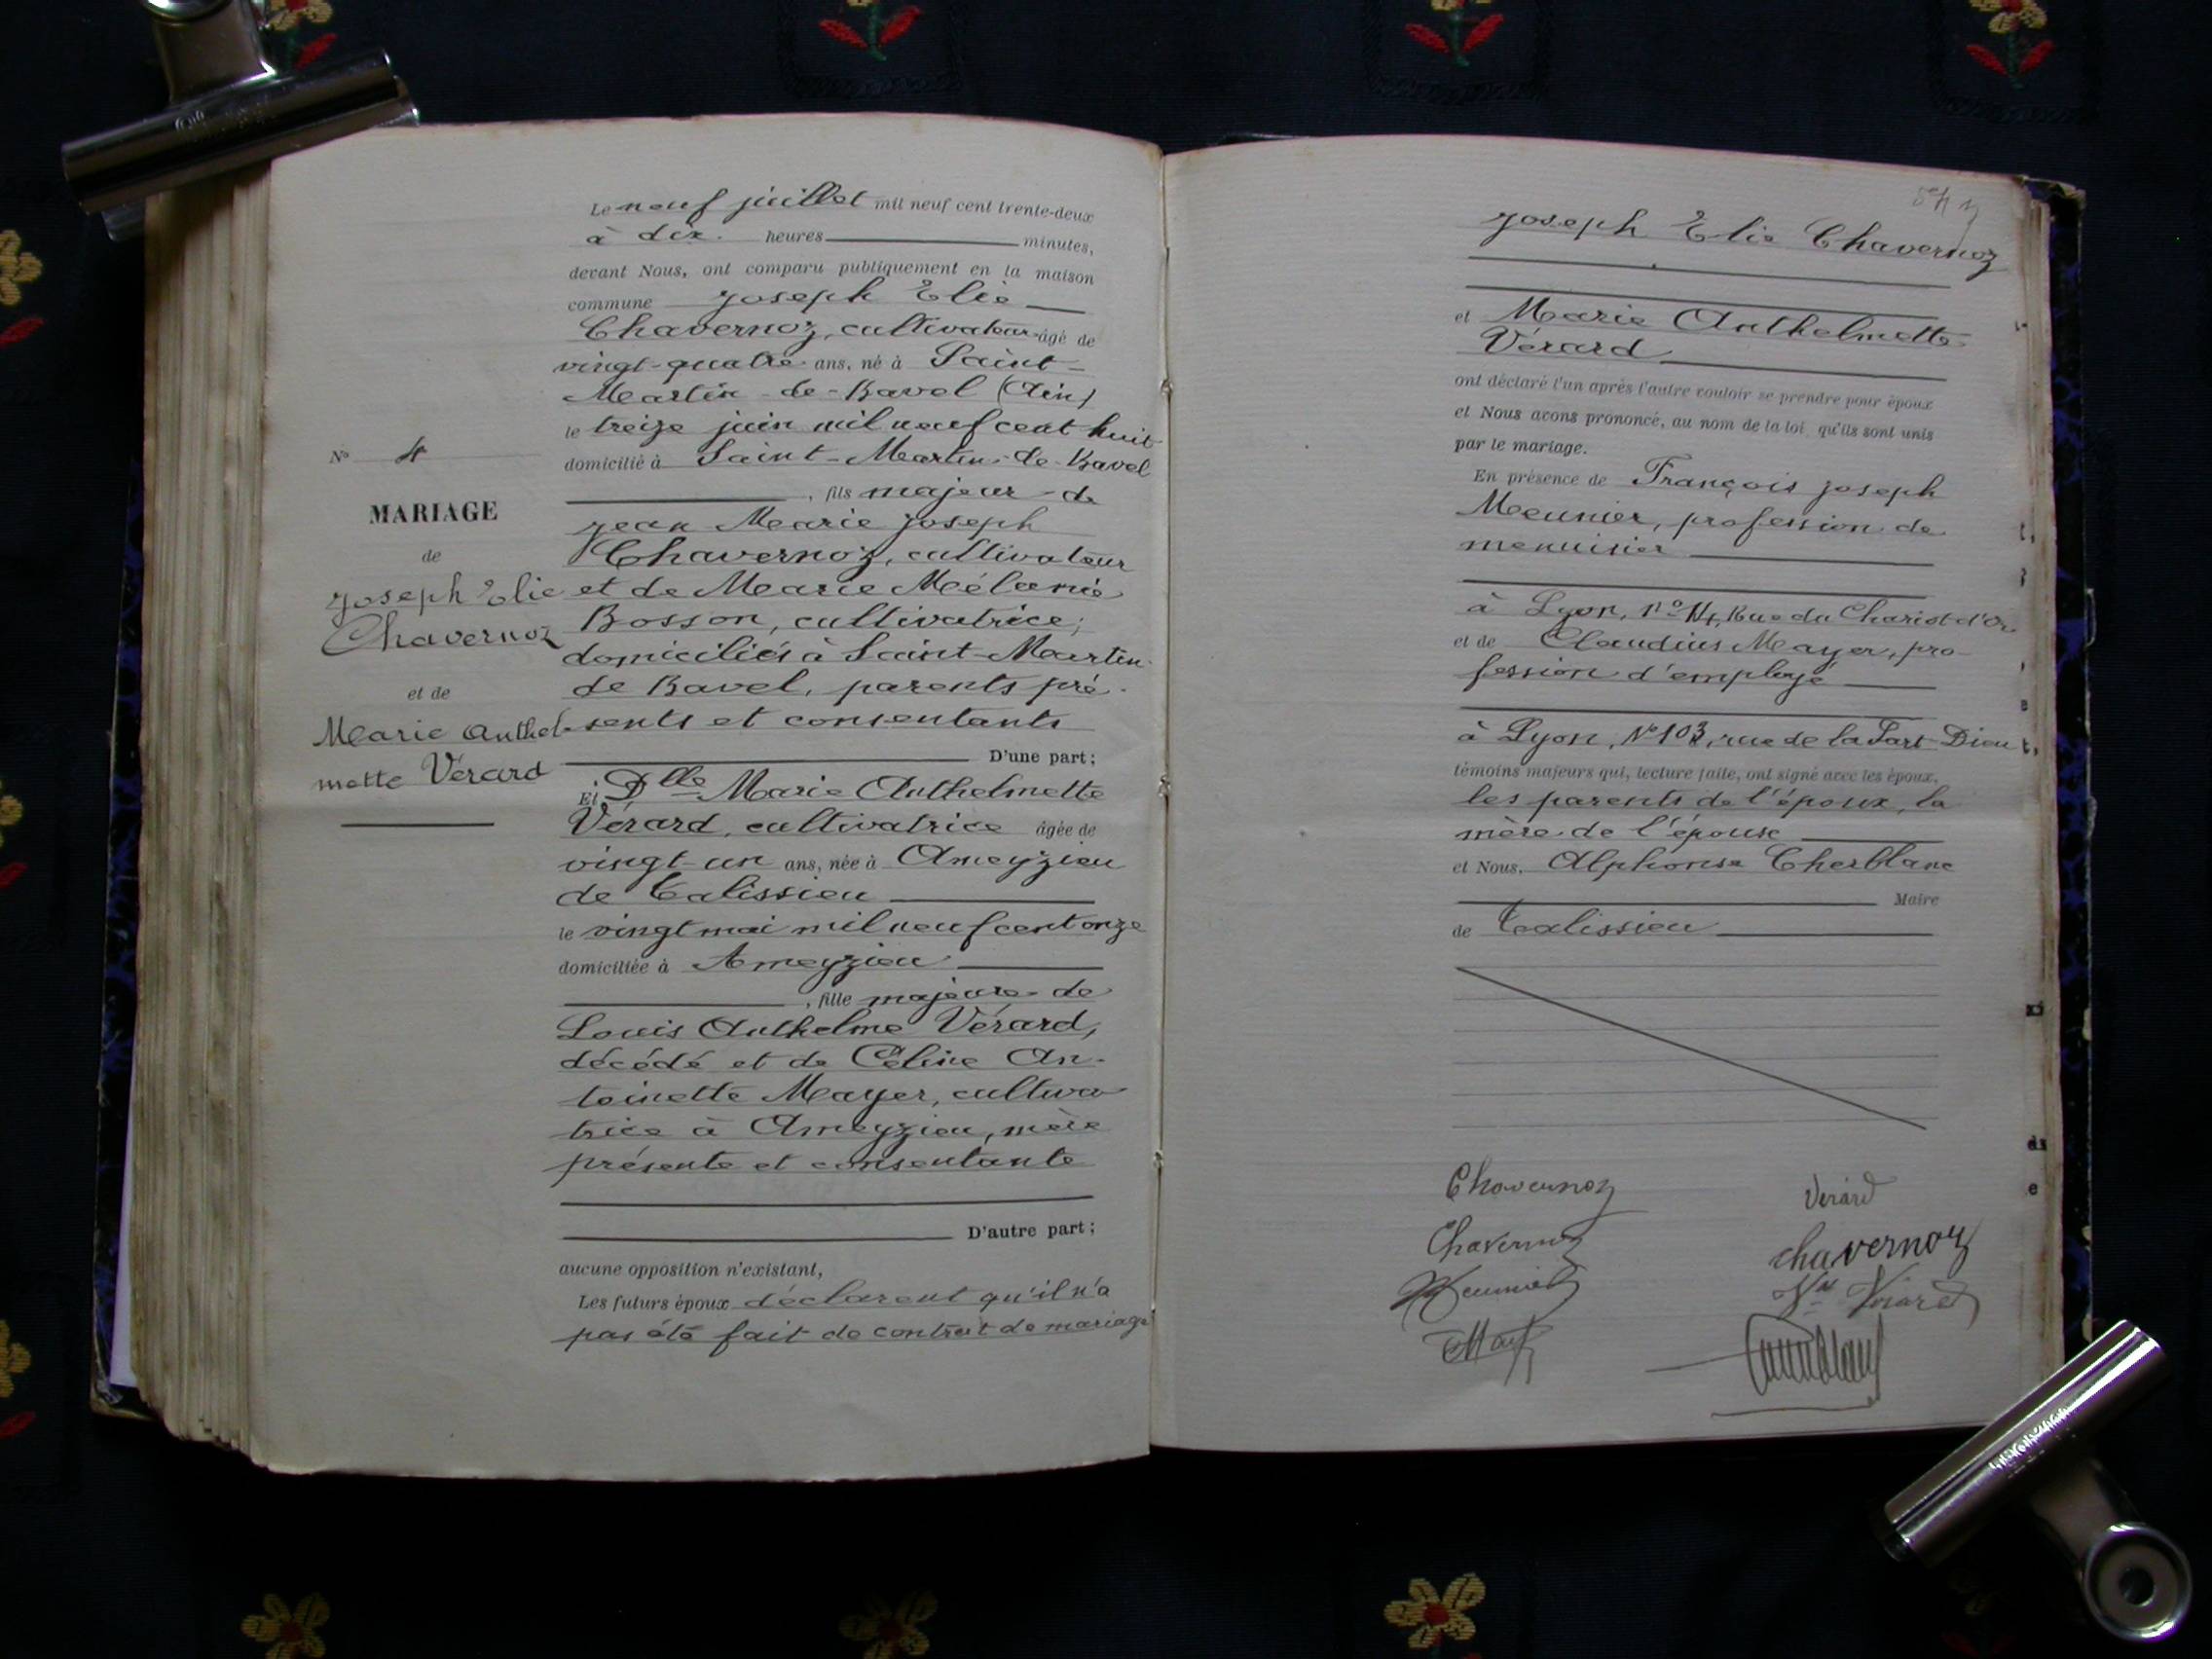 Le neuf juillet mil neuf cent trente-deux
à dix heures minutes,
devant Nous, ont comparu publiquement en la maison
commune Joseph Elie
Chavernoz, cultivateur âgé de
vingt-quatre ans, né à Saint-
Martin-de-Bavel (Ain)
le treize juin mil neuf cent huit
domicilié à Saint-Martin-de-Bavel
, fils majeur de
Jean Marie Joseph
Chavernoz, cultivateur
et de Marie Mélanie
Bosson, cultivatrice,
domiciliés à Saint-Martin
de Bavel, parents pré-
sents et consentants
D'une part;
Et Dlle Marie Anthelmette
Vérard, cultivatrice âgée de
vingt-un ans, née à Ameyzieu
de Talissieu
le vingt mai mil neuf cent onze
domiciliée à Ameyzieu
, fille majeure de
Louis Anthelme Vérard,
décédé et de Céline An-
toinette Mayer, cultiva
trice à Ameyzieu, mère
présente et consentante
D'autre part;
aucune opposition n'existant,
Les futurs époux déclarent qu'il n'a
pas été fait de contrat de mariage
N° 4
MARIAGE
de
Joseph Elie
Chavernoz
et de
Marie Anthel-
mette Vérard
Joseph Elie Chavernoz
et Marie Anthelmette
Vérard
ont déclaré l'un après l'autre vouloir se prendre pour époux
et Nous avons prononcé, au nom de la loi qu'ils sont unis
par le mariage.
En présence de François Joseph
Meunier, profession de
menuisier
à Lyon, n° 14, Rue du Chariot d'Or
et de Claudius Mayer, pro-
fession d'employé
à Lyon, N° 103, rue de la Part-Dieu
témoins majeurs qui, lecture faite, ont signé avec les époux,
les parents de l'époux, la
mère de l'épouse
et Nous, Alphonse Cherblanc
Maire
de Talissieu
Chavernoz Vérard
Chavernoz Chavernoz
Meunier Vve Vérard